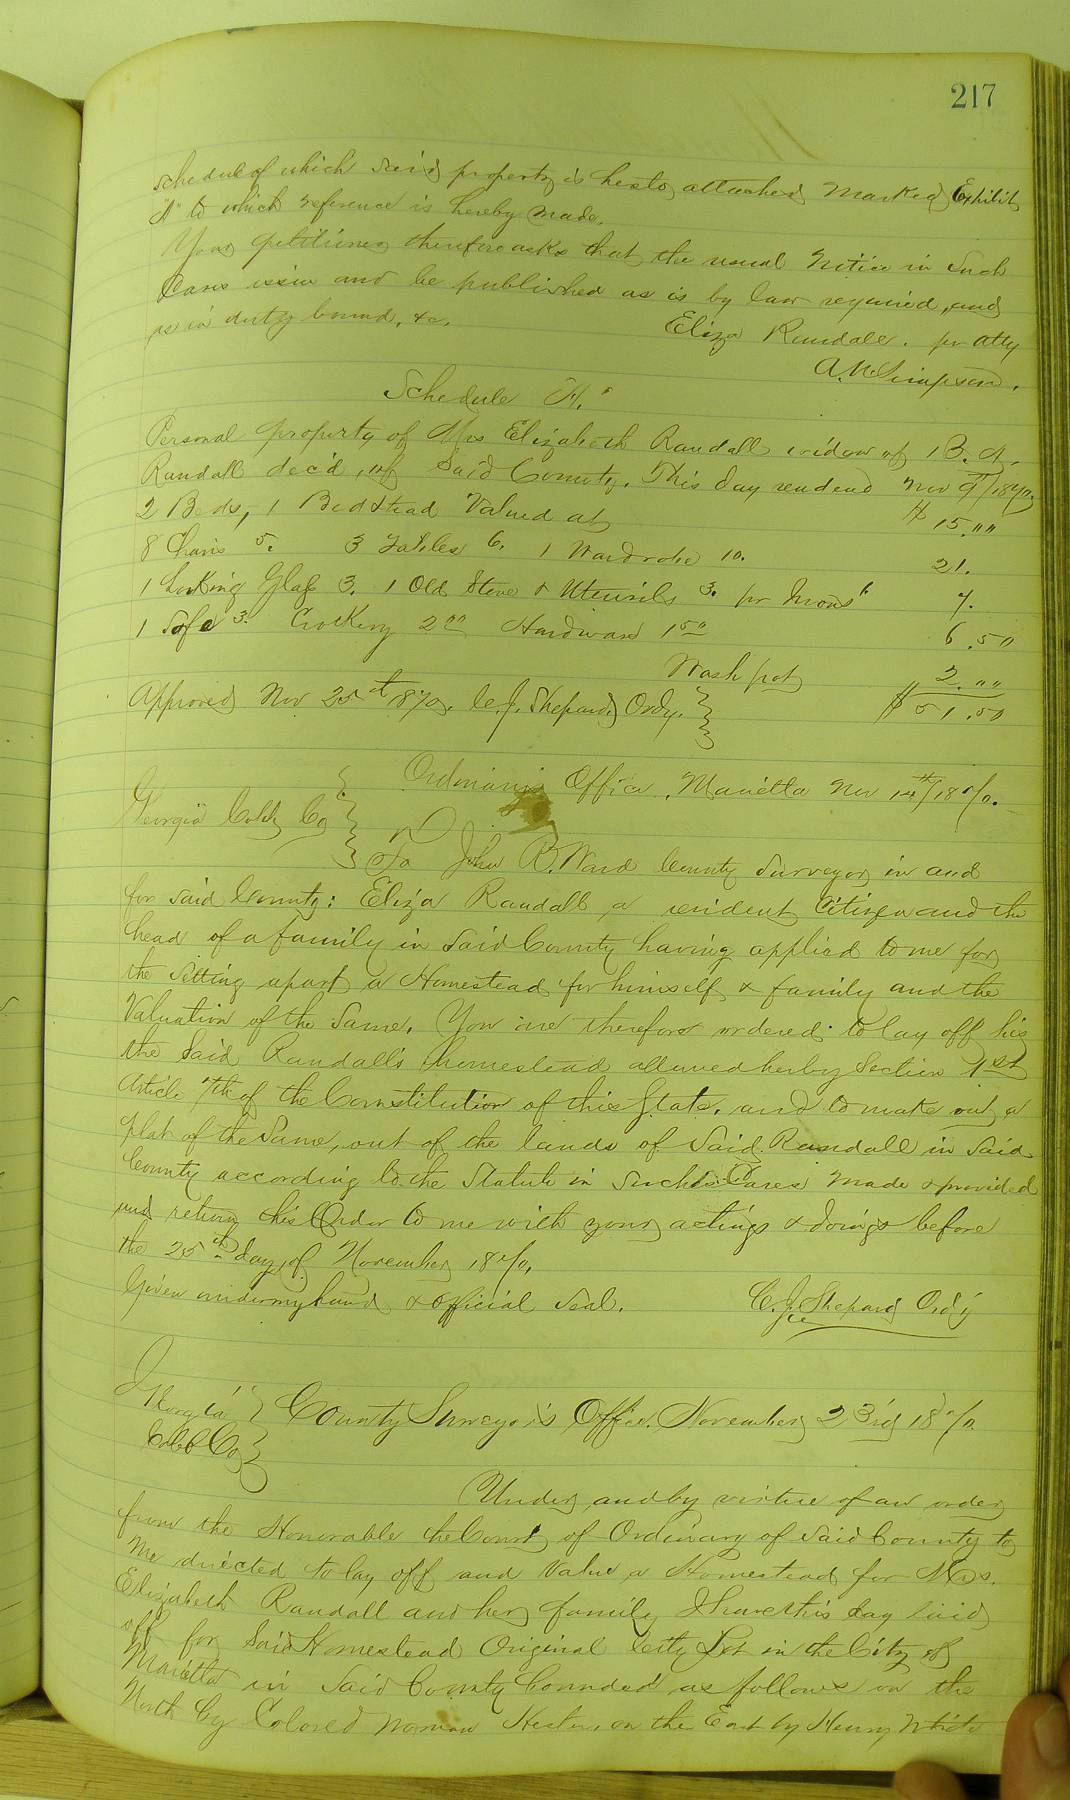 217
schedule of which said property is hereto attached marked Exhibit
"A" to which reference is hereby made.
Your petitioner therefore asks that the usual notice in such
Cases issue and be published as is by law required, and
as in duty bound, &c. Eliza Randall. per atty
A. N. Simpson.
Schedule "A."
Personal property of Mrs Elizabeth Randall widow of B. A.
Randall dec'd, of said County. This day rendered Nov 9th/1870.
2 Beds, 1 Bedstead Valued at $15.00
8 Chairs 5. 3 Tables 6. 1 Wardrobe 10. 21.
1 Looking Glass 3. 1 Old Stove & Utensils 3. pr Irons 1. 7.
1 Safe 3. Crockery 2 00 Hardware 1 50 6.50
Wash pot 2.00
Approved Nov 25th 1870. C. J. Shepard, Ordy. $51.50
Ordinarys Office, Marietta Nov 14th/1870.
Georgia Cobb Co
To John B. Ward County Surveyor in and
for said County: Eliza Randall a resident Citizen and the
head of a family in said County having applied to me for
the setting apart a Homestead for himself & family and the
Valuation of the same. You are therefore ordered to lay off his
the said Randall's homestead allowed her by Section 1st
Article 7th of the Constitution of this State, and to make out a
plat of the same, out of the lands of said Randall in said
County according to the Statute in such Cases made & provided
and return this Order to me with your actings & doings before
the 25th day of November 1870.
Given under my hand & official seal. C. J. Shepard Ord'y
Georgia County Surveyor's Office. November 23rd 1870.
Cobb Co
Under and by virtue of an order
from the Honorable the Court of Ordinary of said County to
me directed to lay off and Value a Homestead for Mrs.
Elizabeth Randall and her family I have this day laid
off for said Homestead Original City Lot in the City of
Marietta in said County bounded as follows on the
North by Colored woman Hester, on the East by Henry White